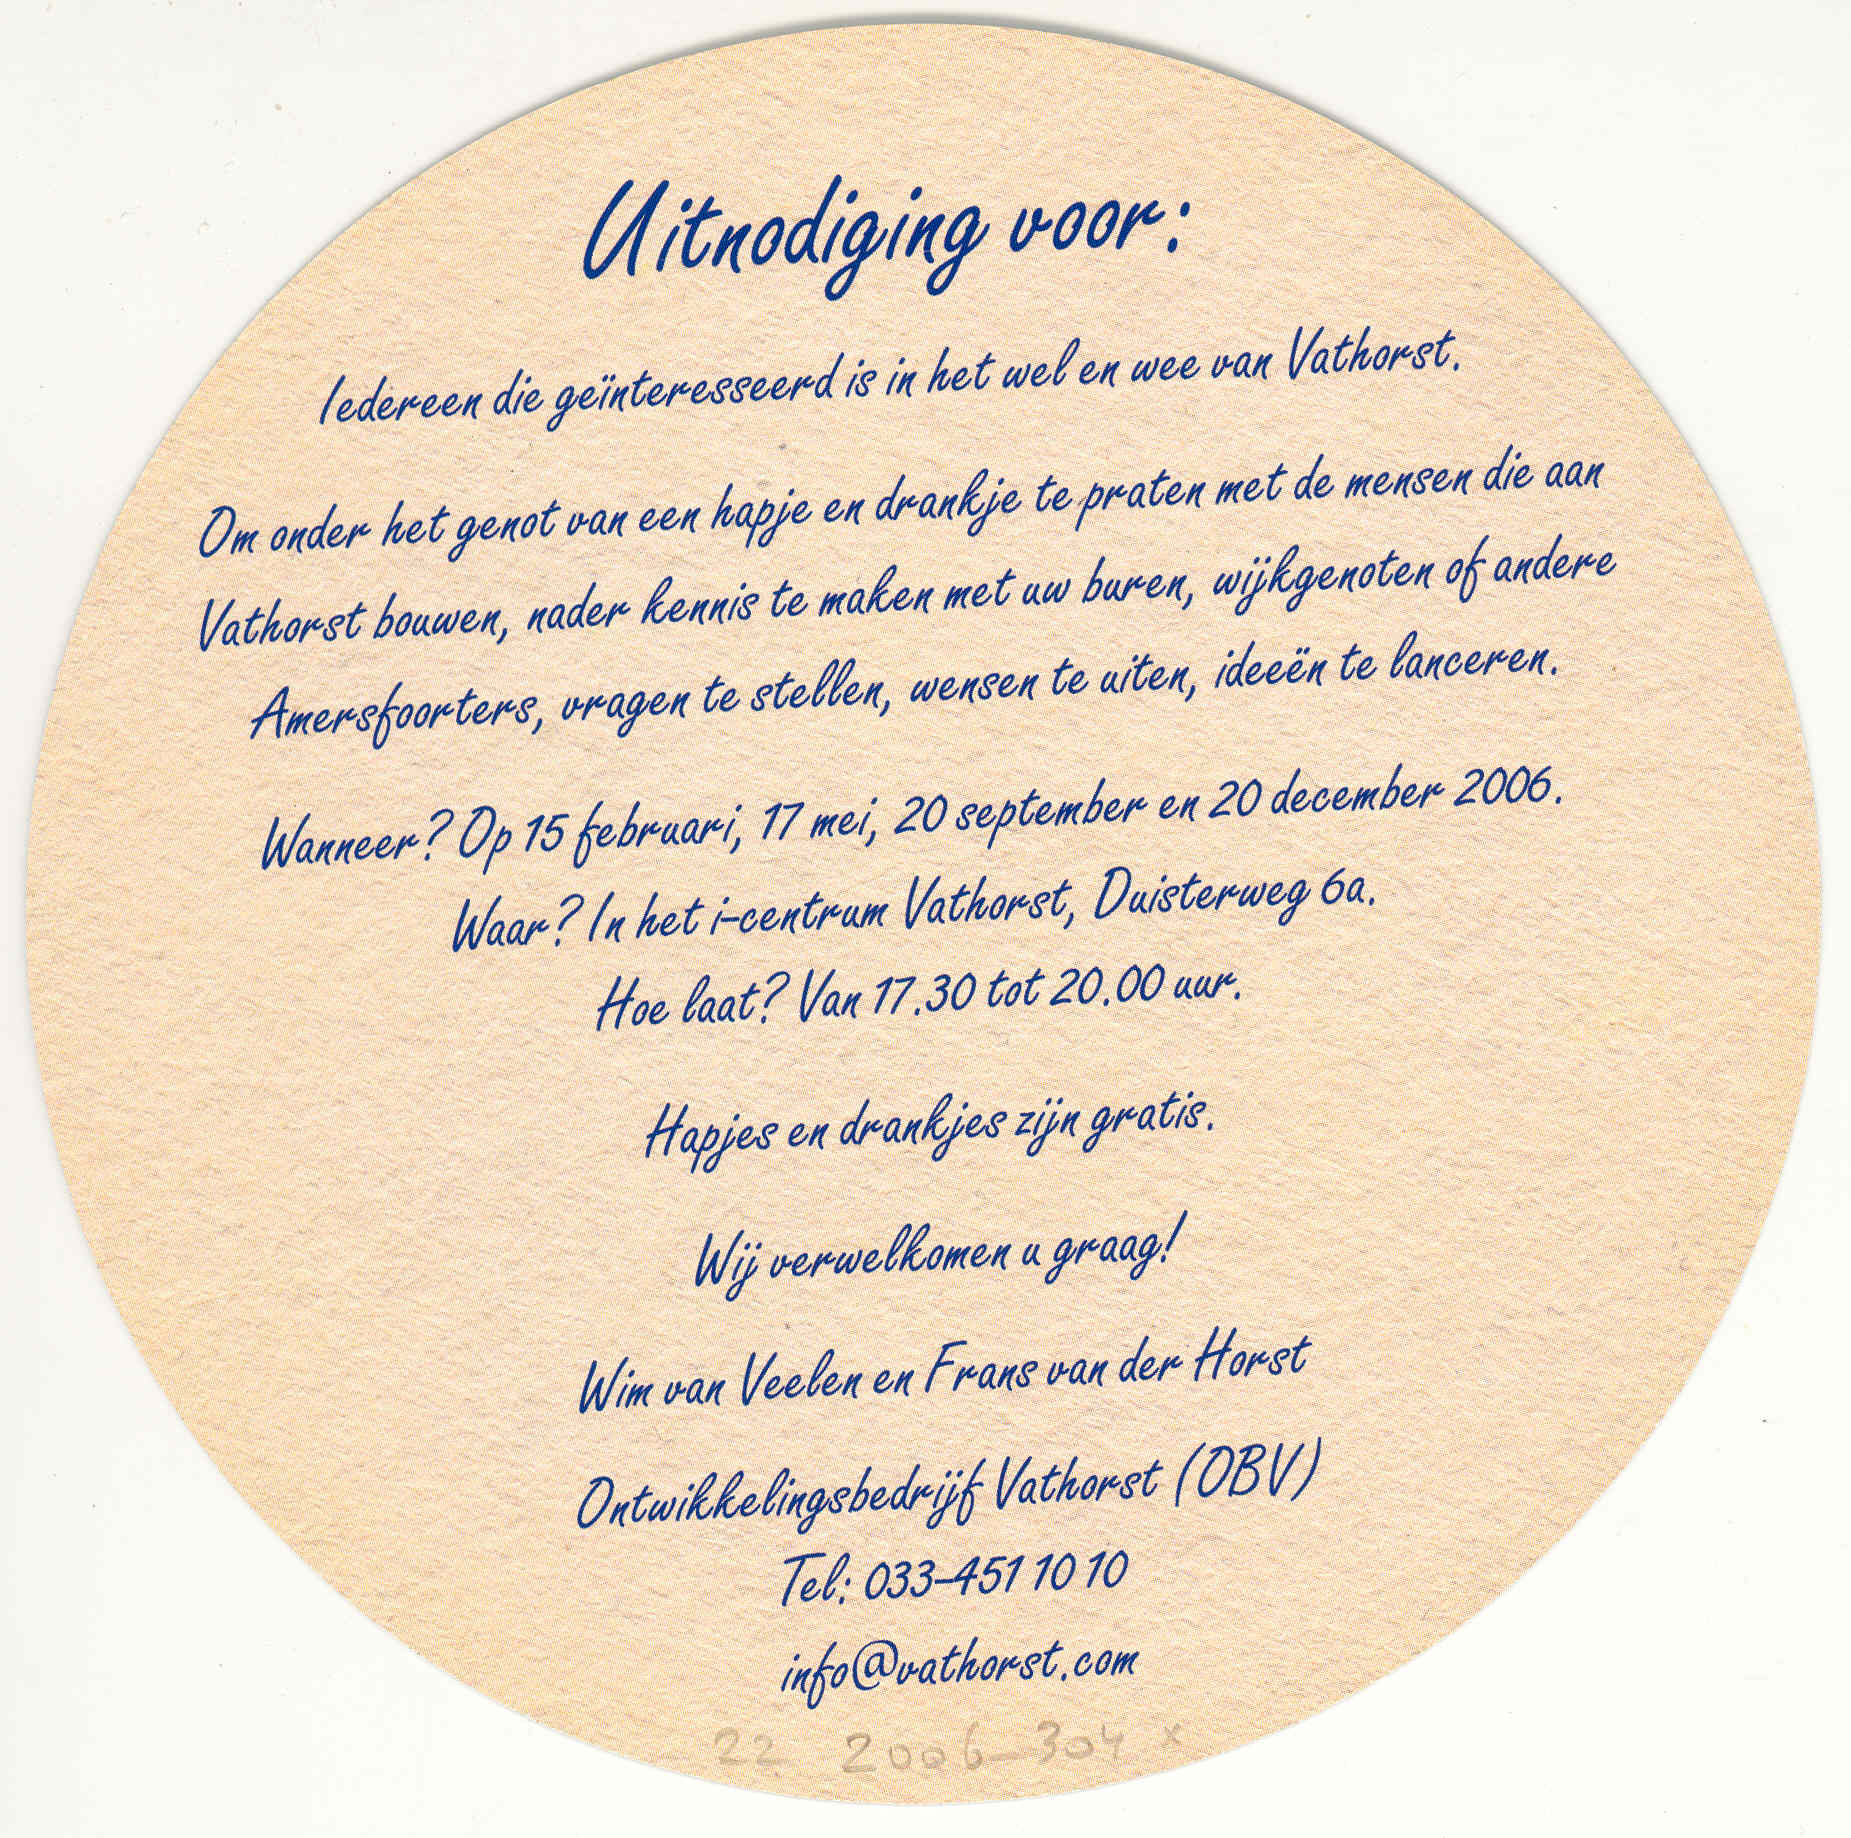 Uitnodiging voor:
Iedereen die geïnteresseerd is in het wel en wee van Vathorst.
Om onder het genot van een hapje en drankje te praten met de mensen die aan
Vathorst bouwen, nader kennis te maken met uw buren, wijkgenoten of andere
Amersfoorters, vragen te stellen, wensen te uiten, ideeën te lanceren.
Wanneer? Op 15 februari, 17 mei, 20 september en 20 december 2006.
Waar? In het i-centrum Vathorst, Duisterweg 6a.
Hoe laat? Van 17.30 tot 20.00 uur.
Hapjes en drankjes zijn gratis.
Wij verwelkomen u graag!
Wim van Veelen en Frans van der Horst
Ontwikkelingsbedrijf Vathorst (OBV)
Tel: 033-451 10 10
info@vathorst.com
22 2006-304 x